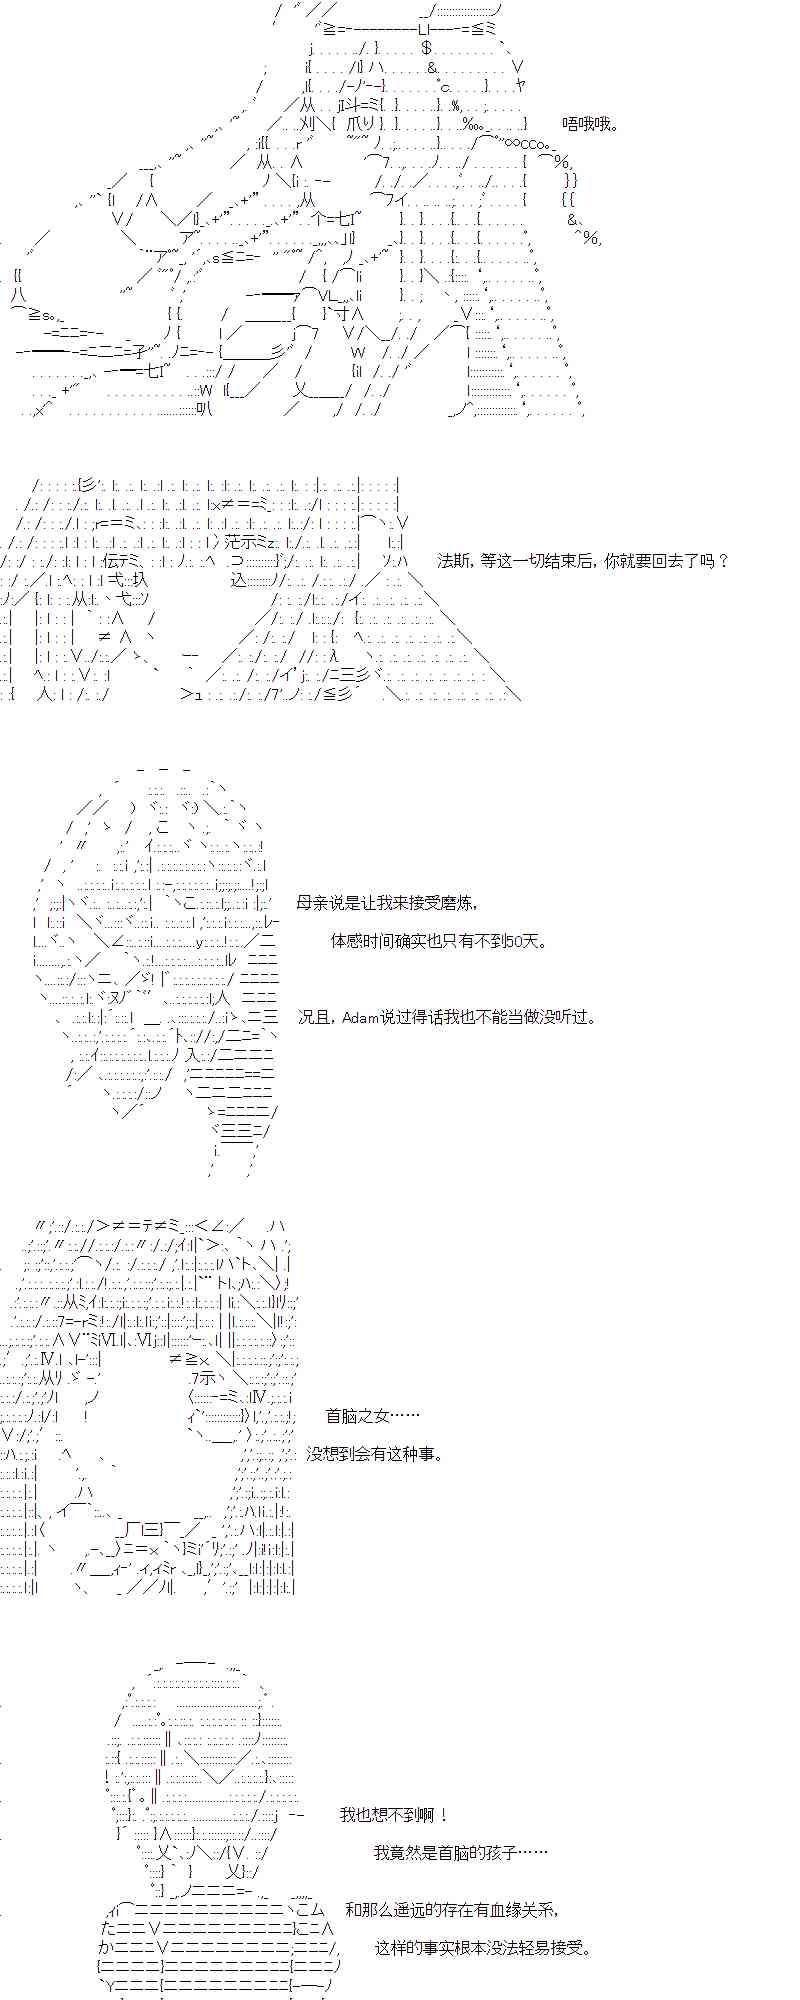 唔哦哦。
法斯，等这一切结束后，你就要回去了吗？
母亲说是让我来接受磨炼，
体感时间确实也只有不到50天。
况且，Adam说过得话我也不能当做没听过。
首脑之女……
没想到会有这种事。
我也想不到啊！
我竟然是首脑的孩子……
和那么遥远的存在有血缘关系，
这样的事实根本没法轻易接受。